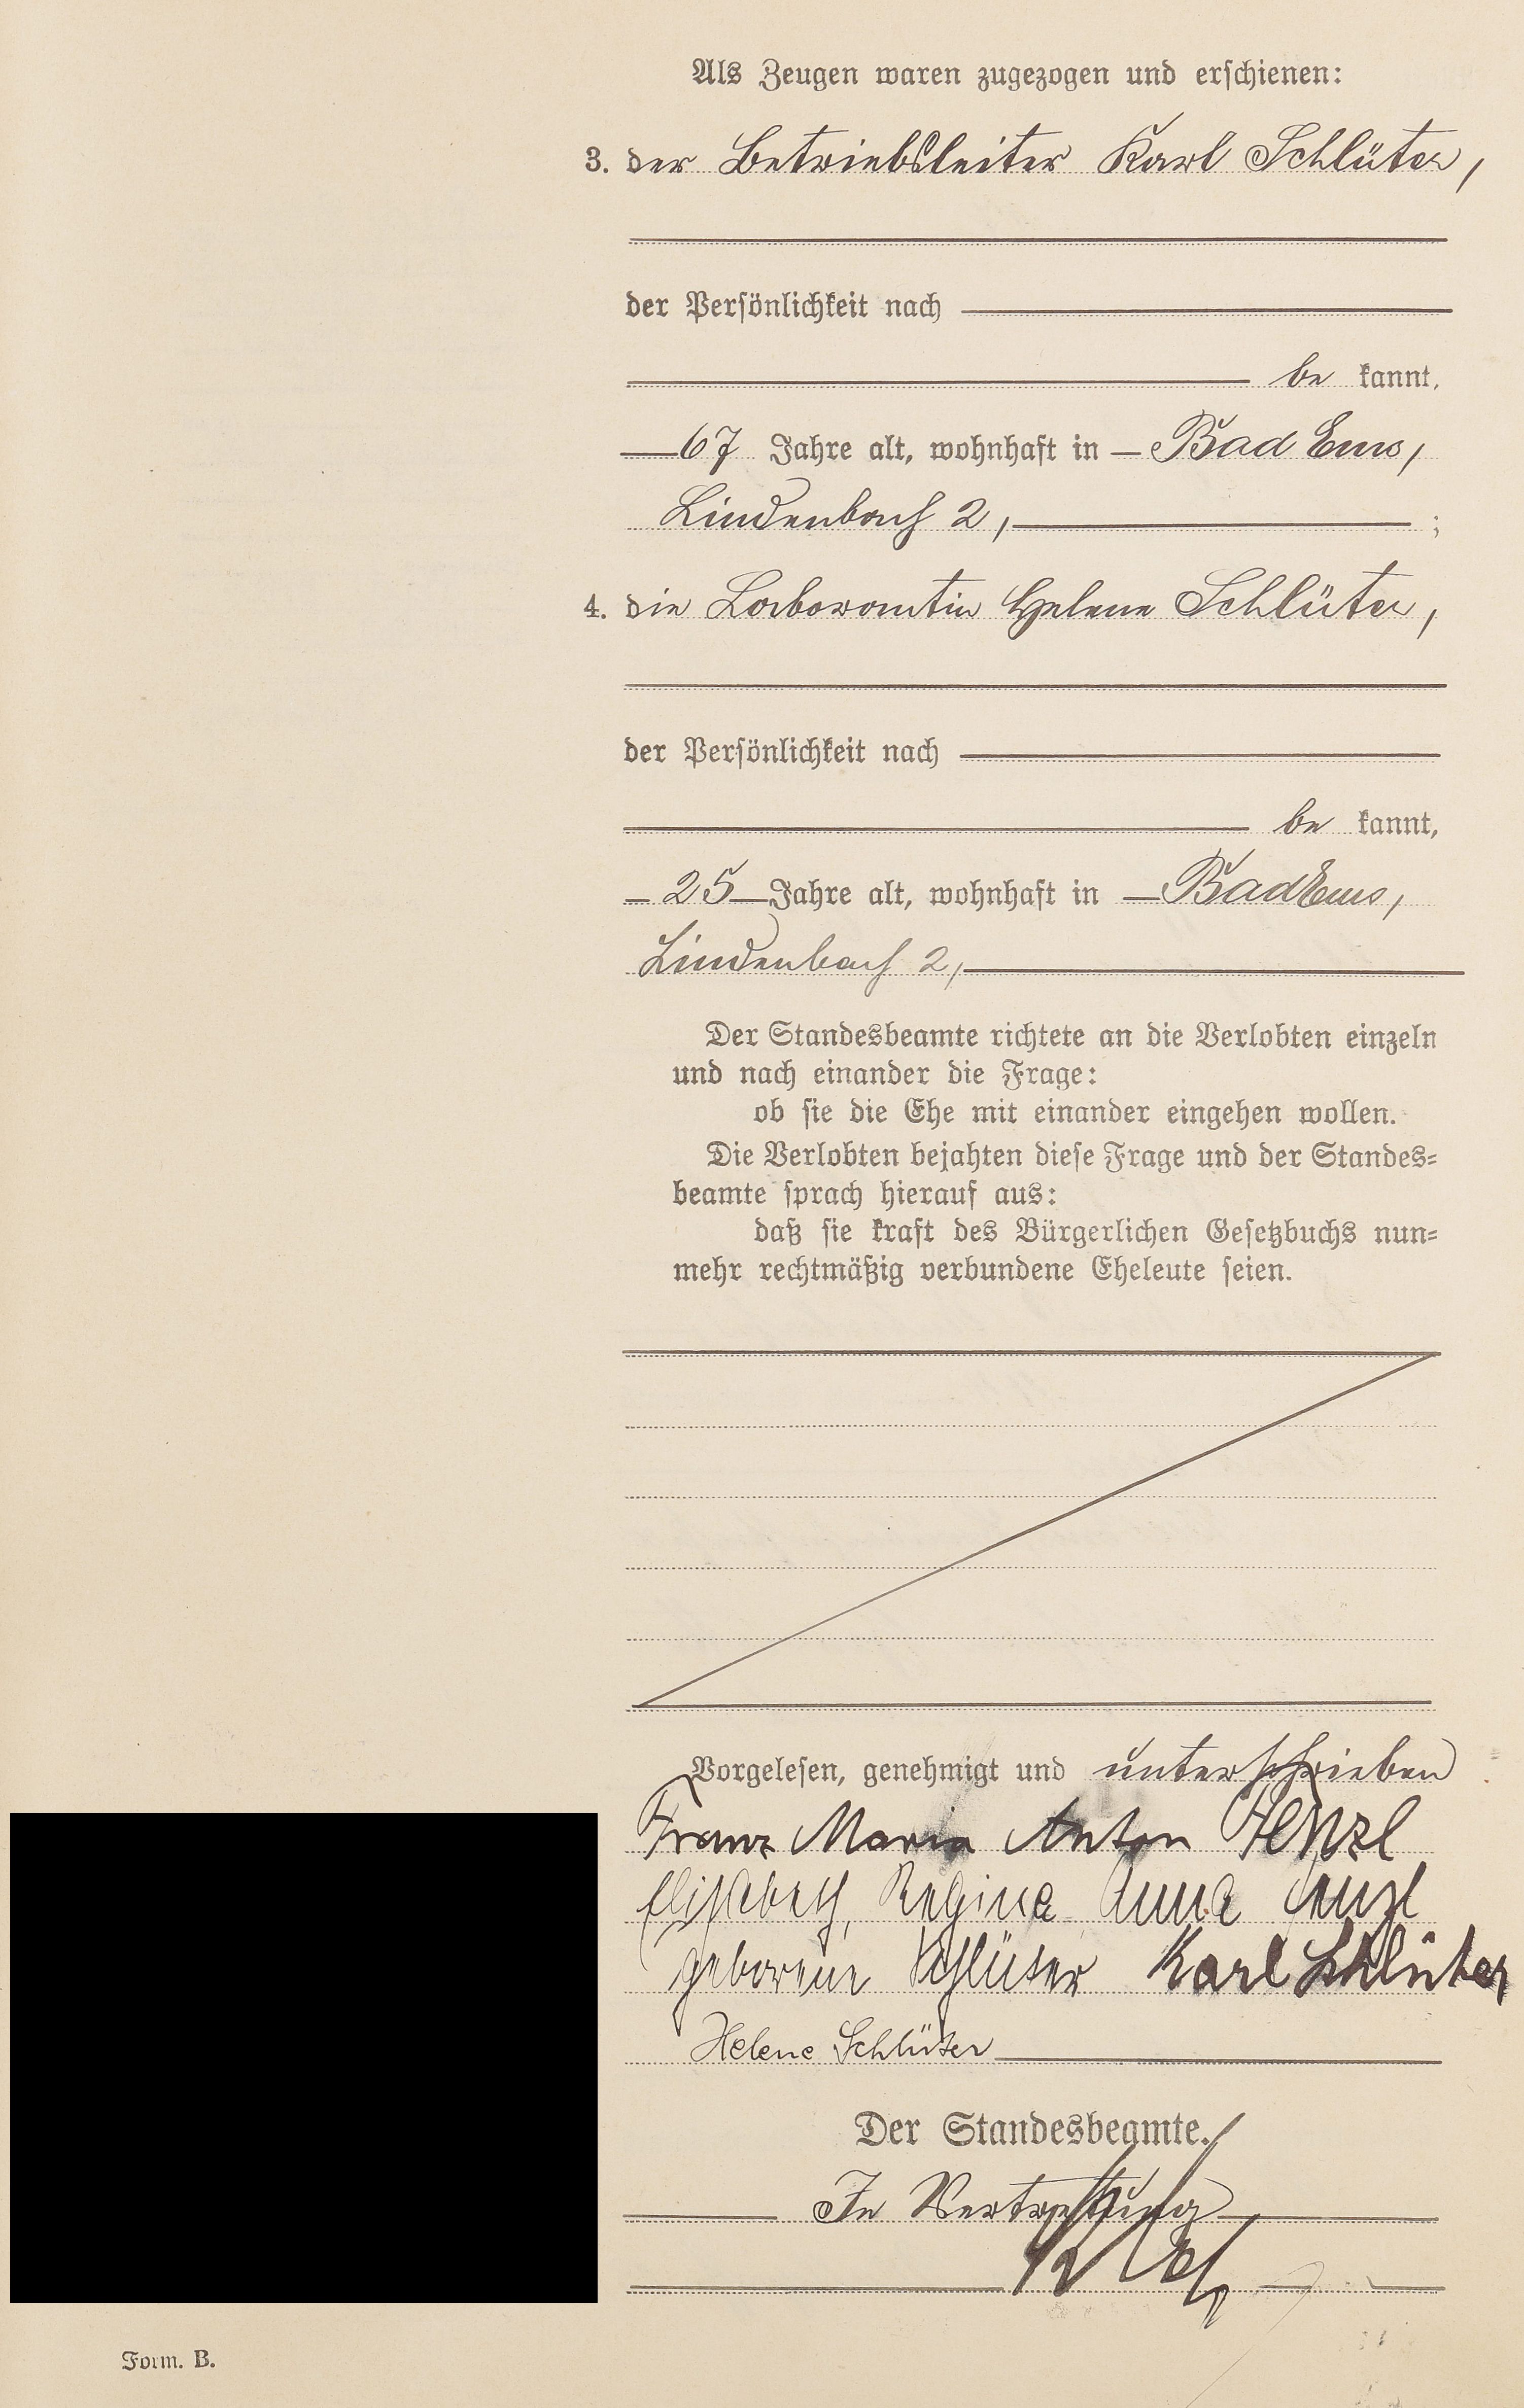 Als Zeugen waren zugezogen und erschienen:
3. der Betriebsleiter Karl Schlüter,
der Persönlichkeit nach
be kannt,
67 Jahre alt, wohnhaft in Bad Ems,
Lindenbach 2, ;
4. die Laborantin Helene Schlüter,
der Persönlichkeit nach
be kannt,
25 Jahre alt, wohnhaft in Bad Ems,
Lindenbach 2,
Der Standesbeamte richtete an die Verlobten einzeln
und nach einander die Frage:
ob sie die Ehe mit einander eingehen wollen.
Die Verlobten bejahten diese Frage und der Standes-
beamte sprach hierauf aus:
daß sie kraft des Bürgerlichen Gesetzbuchs nun-
mehr rechtmäßig verbundene Eheleute seien.
Vorgelesen, genehmigt und unterschrieben
Franz Maria Anton Henzl
Elisabeth, Regina Anna Henzl
geborene Schlüter Karl Schlüter
Helene Schlüter
Der Standesbeamte.
In Vertretung
Form. B.